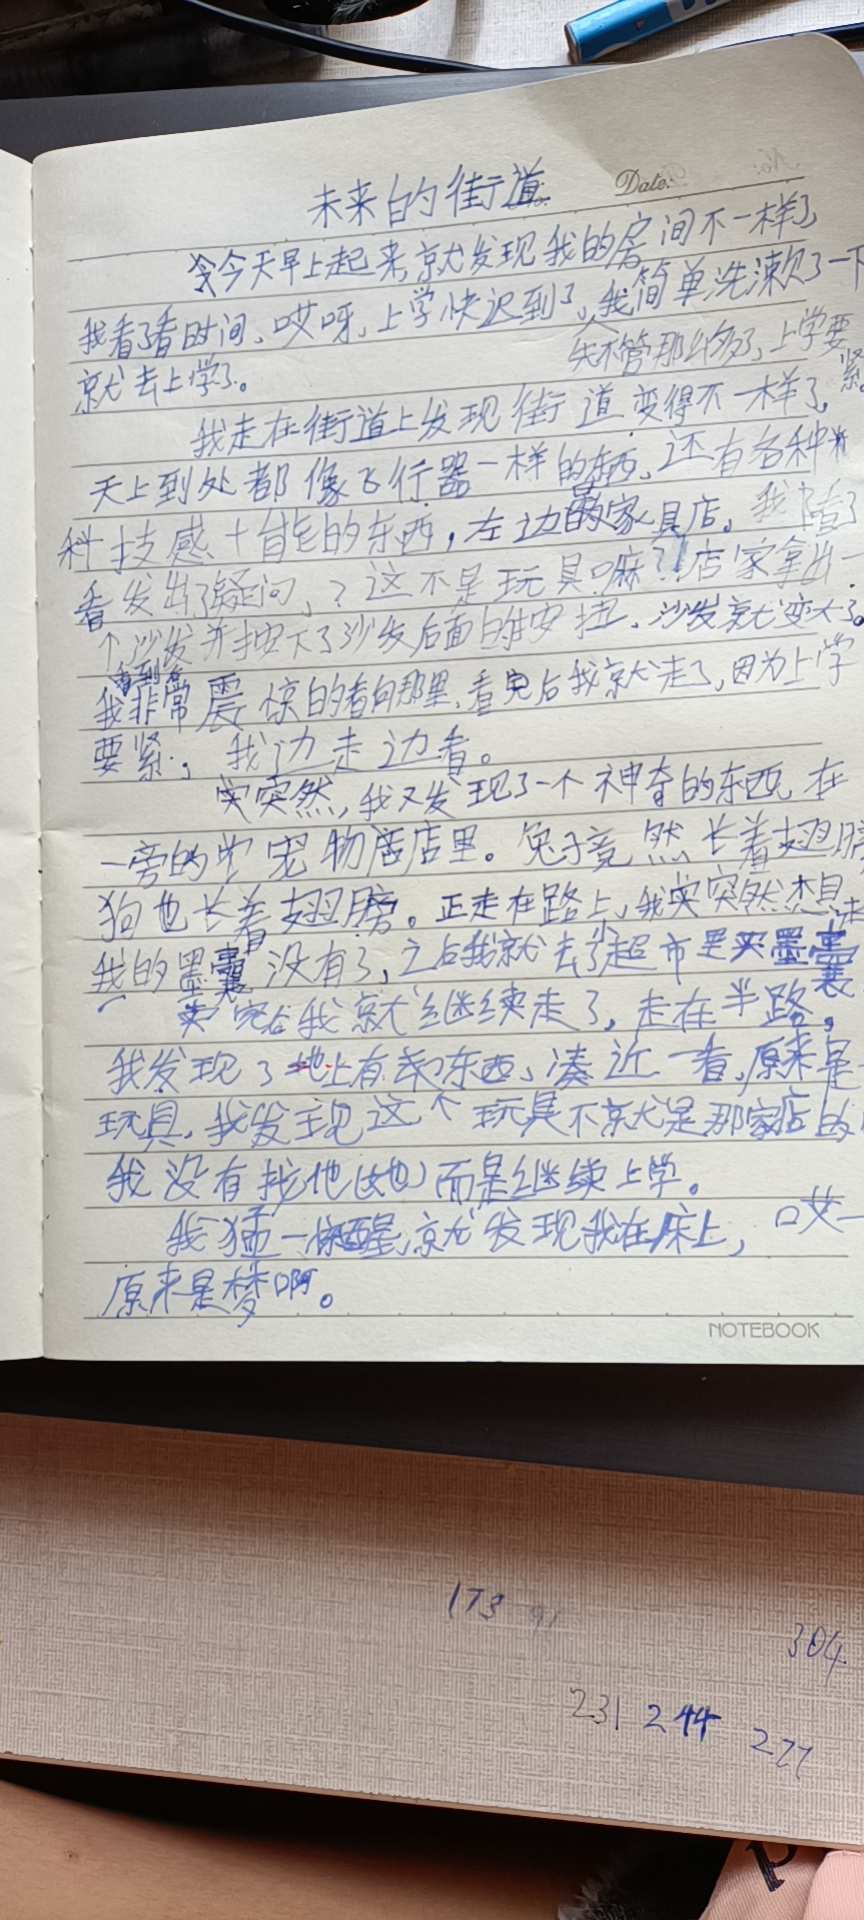 未来的街道
Date:
今天早上起来,就发现我的房间不一样了
我看了看时间、哎呀、上学快迟到了,我简单洗漱了一下
先不管那么多了,上学要紧。
就去上学了。
我走在街道上发现街道变得不一样了,
天上到处都像飞行器一样的东西、还有各种
科技感十能的东西,左边是家具店。我看了
看发出了疑问,?这不是玩具嘛?!店家拿出一
个沙发并按下了沙发后面的按扭、沙发就变大了。
看到后
我非常震惊的看向那里、看完后我就走了,因为上学
要紧,我边走边看。
突然,我又发现了一个神奇的东西,在
一旁的宠物店里。兔子竟然长着翅膀
狗也长着翅膀。正走在路上,我突然想
我的墨囊没有了,之后我就去了超市里买墨囊
买完后我就继续走了,走在半路,
我发现了地上有东西、凑近一看,原来是
玩具,我发现这个玩具不就是那家店的
我没有找他(她)而是继续上学。
我猛一惊醒,就发现我在床上,哎一
原来是梦啊。
NOTEBOOK
173 91
304
231 244 277